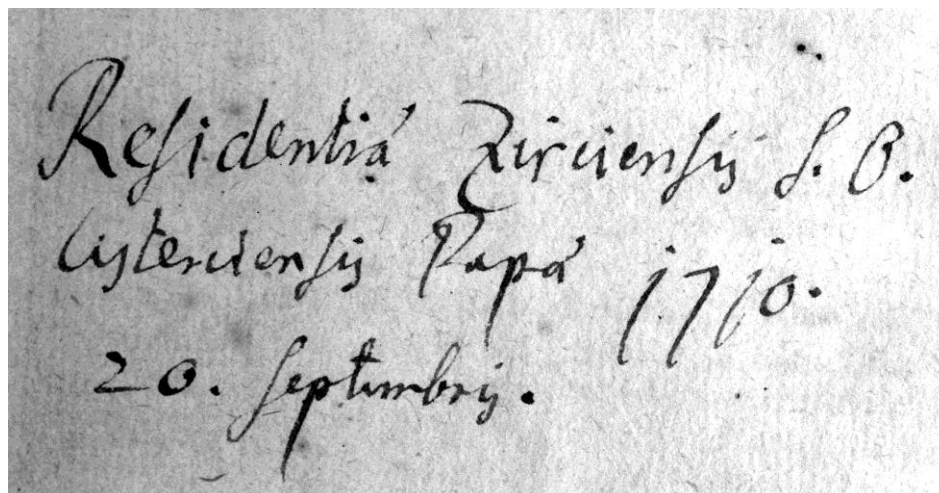 Residentiá Zirciensis S. O.
Cisterciensis Papá 1710.
20. Septembris.